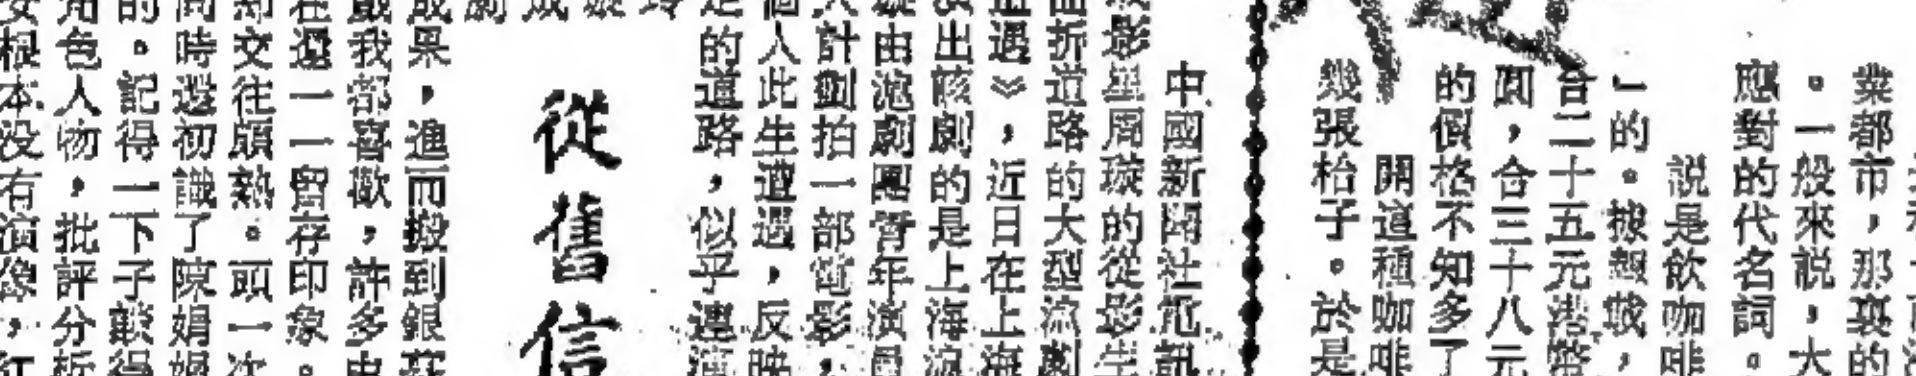 業都市，那裏的
。一般來說，大
應對的代名詞。
說是飲咖啡
」的。據報載，
合二十五元港幣
圓，合三十八元
的價格不知多了
開這種咖啡
幾張枱子。於是
中國新聞社電訊
影星周璇的從影生
曲折道路的大型滬劇
遇》，近日在上海
演出該劇的是上海滬
由滬劇團青年演員
計劃拍一部電影，
個人此生遭遇，反映
的道路，似乎連
從舊信
成果，進而搬到銀幕
戲我都喜歡，許多
在還一一留存印象。
却文往頗熟。頭一次
同時還初識了陳娟娟
的。記得一下子談得
角色人物，批評分析
根本没有演像，